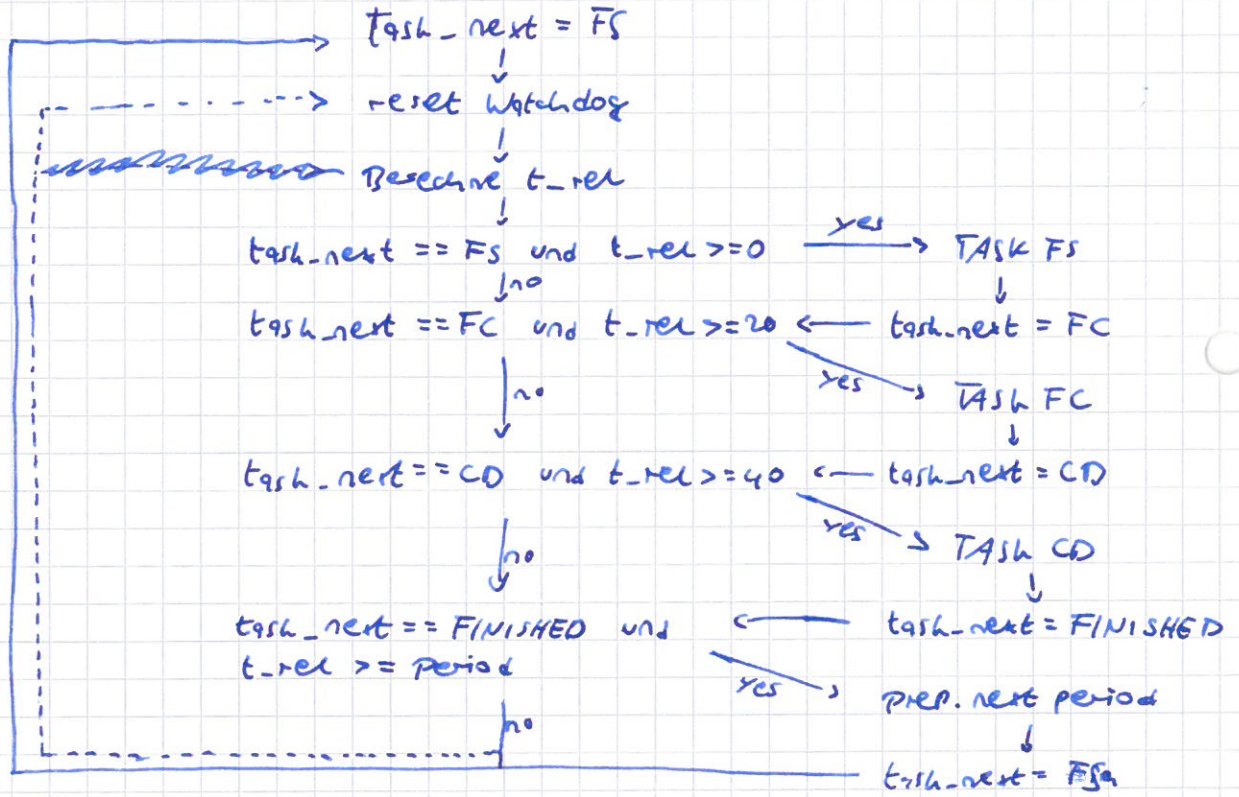 task_next = FS
reset Watchdog
Berechne t_rel
task_next == FS und t_rel >=0 yes TASK FS
no
task_next == FC und t_rel >=20 task_next = FC
yes
no TASK FC
task_next == CD und t_rel >=40 task_next = CD
yes
no TASK CD
task_next == FINISHED und task_next = FINISHED
t_rel >= period
yes prep. next period
no
task_next = FS